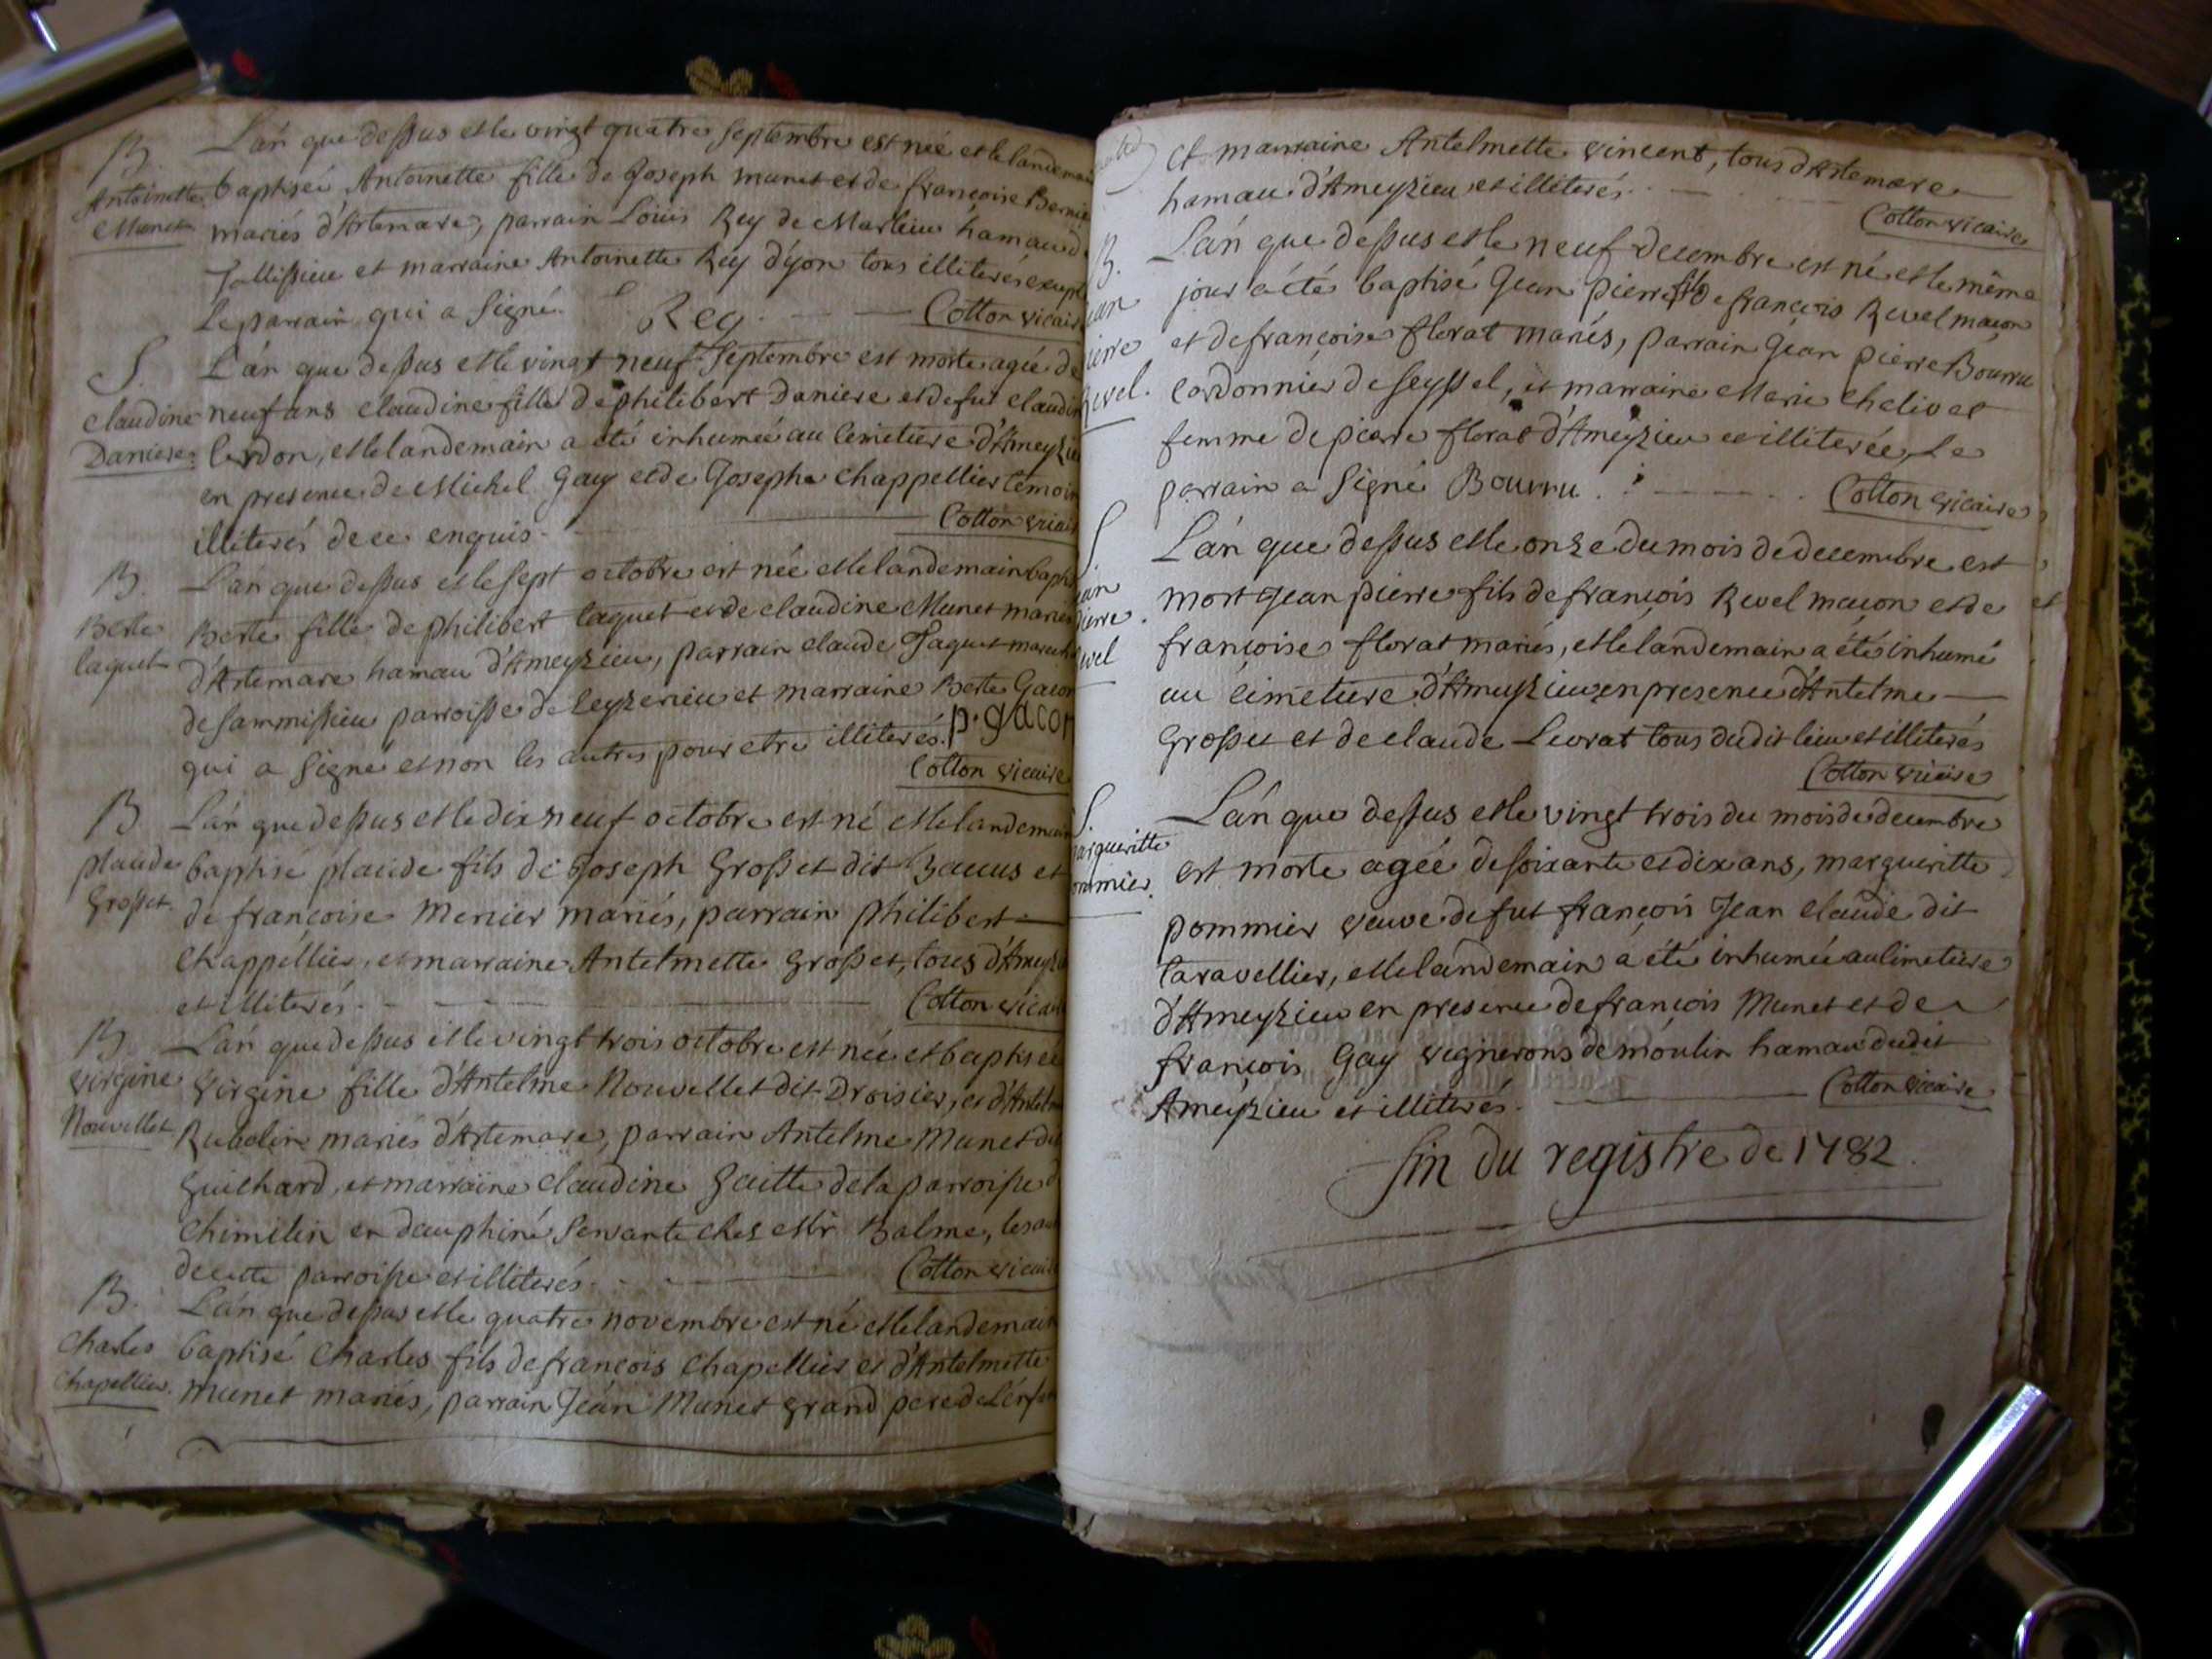 B. L'an que dessus et le vingt quatre septembre est née et le landemain
Antoinette baptisée Antoinette fille de Joseph Munet et de françoise Bernier
Munet mariés d'Artemare, parrain Loüis Rey de Marlieu hamau d
et marraine Antoinette Rey d'yon tous illiterés except
le parrain qui a signé. Rey. Cotton vicaire
S. L'an que dessus et le vingt neuf septembre est morte agée de
Claudine neuf ans claudine fille de philibert Daniere et de fut claudin
Daniere lerdon, et le landemain a été inhumée au cimetiere d'Ameyzieu
en presence de Michel Gay et de Josephe chappellier temoin
illiterés de ce enquis. Cotton vicaire
B. L'an que dessus et le sept octobre est née et le landemain bapti
Berte Berte fille de philibert laquet et de claudine Munet mariés
laquet d'Artemare hamau d'Ameyzieu, parrain claude Jaquet
de sammissieu parroisse de leyzerieu et marraine Berte Gacon
qui a signé et non les autres pour etre illiterés. p. gacon
Cotton vicaire
B L'an que dessus et le dix neuf octobre est né et le landemain
placide baptisé placide fils de Joseph Grosset dit Bauus et
Grosset de françoise Menier mariés, parrain philibert
chappellier, et marraine Antelmette Grosset, tous d'Ameyzi
et illiterés. Cotton vicaire
B. L'an que dessus et le vingt trois octobre est née et baptisée
virgine virgine fille d'Antelme Nouvellet dit Droisier, et d'Antelm
Nouvellet Rubolin mariés d'Artemare, parrain Antelme Munet dit
Guichard, et marraine claudine Gaitte de la parroisse d
chimilin en dauphiné servante ches Mr Balme, les au
de cette parroisse et illiterés. Cotton vicaire
B. L'an que dessus et le quatre novembre est né et le landemain
Charles baptisé Charles fils de françois Chapellier et d'Antelmette
Chapellier. Munet mariés, parrain Jean Munet grand pere de l'enfant
et marraine Antelmette vincent, tous d'Artemare
hamau d'Ameyzieu et illiterés.
Cotton vicaire
B. L'an que dessus et le neuf decembre est né et le même
ean jour a été baptisé Jean pierre fils de françois Revel maçon
ierre et de françoise florat mariés, parrain Jean pierre Bourru
Revel. cordonnier de seyssel, et marraine Marie chelivet
femme de pierre florat d'Ameyzieu et illiterée, le
parrain a signé Bourru. Cotton vicaire
S L'an que dessus et le onze du mois de decembre est
ean mort Jean pierre fils de françois Revel maçon et de
pierre françoise florat mariés, et le landemain a été inhumé
evel au cimetiere d'Ameyzieu en presence d'Antelme
Grosset et de claude Levrat tous dudit lieu et illiterés
Cotton vicaire
S. L'an que dessus et le vingt trois du mois de decembre
argueritte est morte agée de soixante et dix ans, margueritte
ommier pommier veuve de fut françois Jean claude dit
taravellier, et le landemain a été inhumée au cimetiere
d'Ameyzieu en presence de françois Munet et de
françois Gay vignerons de moulin hamau dudit
Ameyzieu et illiterés. Cotton vicaire
fin du registre de 1782.